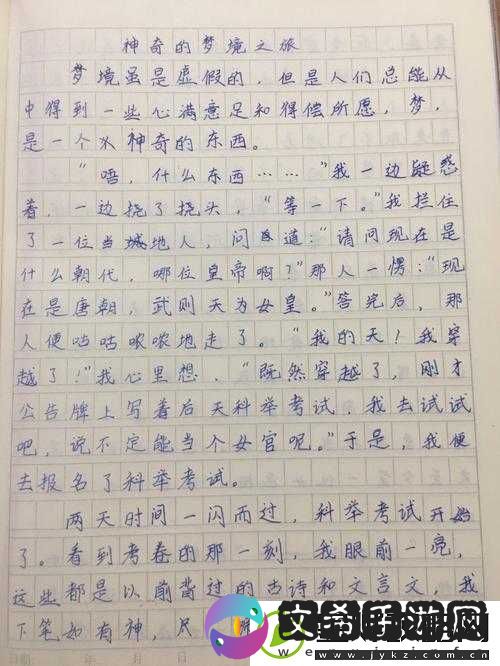 神奇的梦境之旅
梦境虽是虚假的，但是人们总能从
中得到一些心满意足和得偿所愿，梦，
是一个神奇的东西。
“唔，什么东西……”我一边疑惑
着，一边挠了挠头，“等一下。”我拦住
了一位当地人，问道：“请问现在是
什么朝代，哪位皇帝啊？”那人一愣：“现
在是唐朝，武则天为女皇。”答完后，那
人便咕咕哝哝地走了。“我的天！我穿
越了！”我心里想，“既然穿越了，刚才
公告牌上写着后天科举考试，我去试试
吧，说不定能当个女官呢。”于是，我便
去报名了科举考试。
两天时间一闪而过，科举考试开始
了。看到考卷的那一刻，我眼前一亮，
这些都是以前背过的古诗和文言文，我
下笔如有神，
文希手游网
www.jykz.com.cn